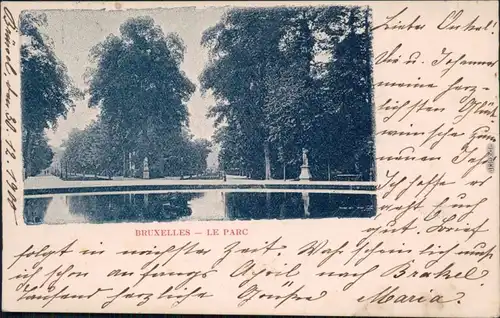 Brüssel, den 30. 12. 1900
Lieber Onkel!
Dir u. Johanna
meine herz-
lichsten Glück
wünsche zum
neuen Jahre
Ich hoffe es
geht Euch
gut. Brief
BRUXELLES — LE PARC
folgt in nächster Zeit. Wahrscheinlich muß
ich schon anfangs April nach Brakel.
Tausend herzliche Grüße Maria.